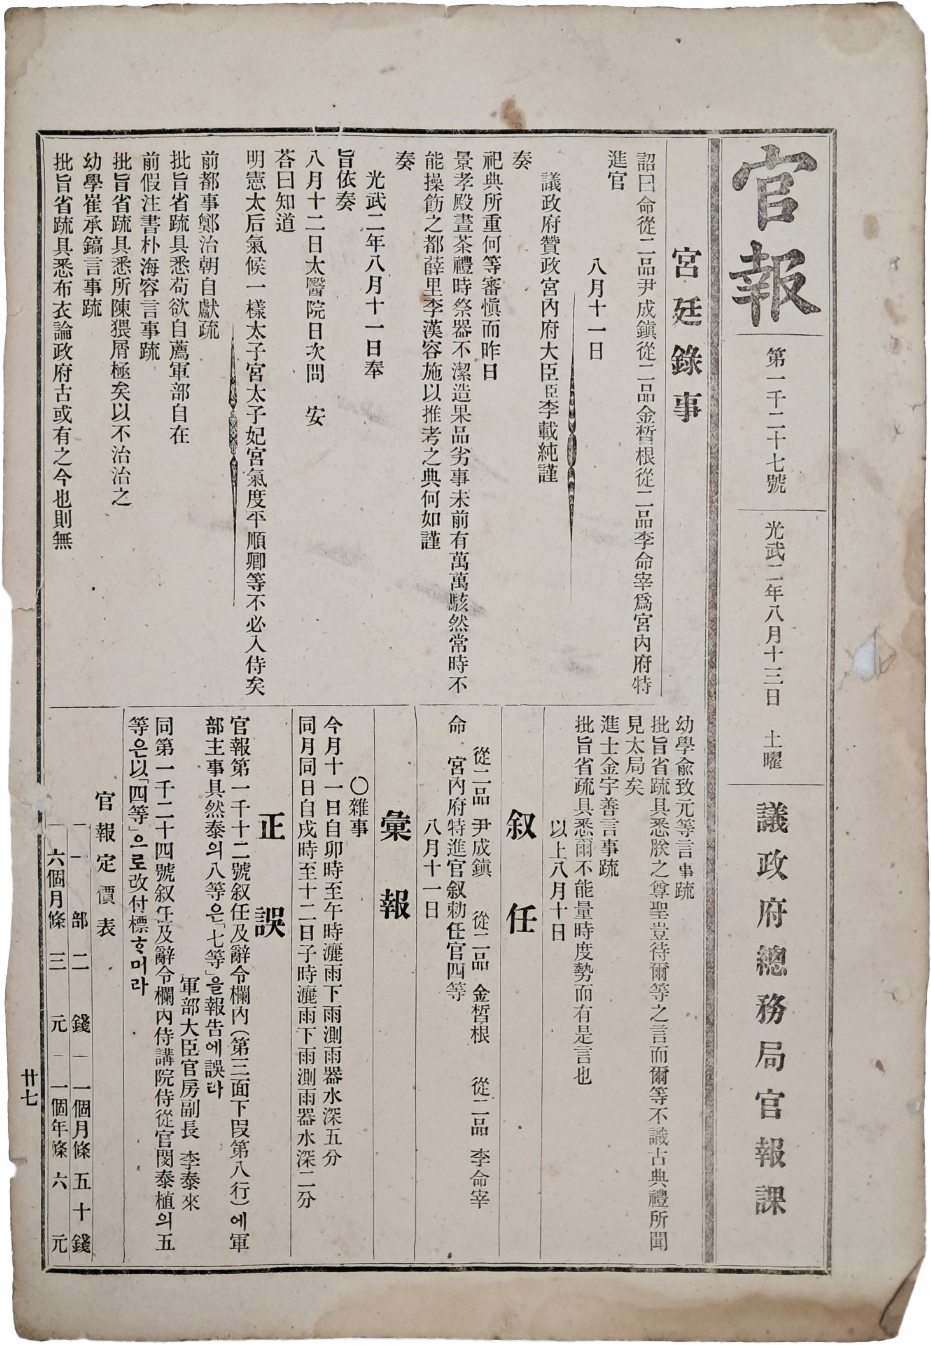 官報
第一千二十七號
光武二年八月十三日 土曜
議政府總務局官報課
宮廷錄事
詔曰命從二品尹成鎭從二品金晳根從二品李命宰爲宮內府特
進官
八月十一日
議政府贊政宮內府大臣臣李載純謹
奏
祀典所重何等審愼而昨日
景孝殿晝茶禮時祭器不潔造果品劣事未前有萬萬駭然常時不
能操飭之都薛里李漢容施以推考之典何如謹
奏
光武二年八月十一日奉
旨依奏
八月十二日太醫院日次問 安
荅曰知道
明憲太后氣候一樣太子宮太子妃宮氣度平順卿等不必入侍矣
前都事鄭治朝自獻疏
批旨省疏具悉苟欲自薦軍部自在
前假注書朴海容言事疏
批旨省疏具悉所陳猥屑極矣以不治治之
幼學崔承鎬言事疏
批旨省疏具悉布衣論政府古或有之今也則無
幼學兪致元等言事疏
批旨省疏具悉朕之尊聖豈待爾等之言而爾等不議古典禮所聞
見太局矣
進士金宇善言事疏
批旨省疏具悉爾不能量時度勢而有是言也
以上八月十日
叙任
從二品 尹成鎭 從二品 金晳根 從二品 李命宰
命 宮內府特進官叙勅任官四等
八月十一日
彙報
〇雜事
今月十一日自卯時至午時灑雨下雨測雨器水深五分
同月同日自戌時至十二日子時灑雨下雨測雨器水深二分
正誤
官報第一千十二號叙任及辭令欄內(第三面下段第八行)에軍
部主事具然泰의八等은「七等」을報告에誤라
軍部大臣官房副長 李泰來
同第一千二十四號叙任及辭令欄內侍講院侍從官閔泰植의五
等은以「四等」으로改付標ᄒᆞ미라
官報定價表
一部 二錢 一個月條 五十錢
六個月條 三元 一個年條 六元
廿七